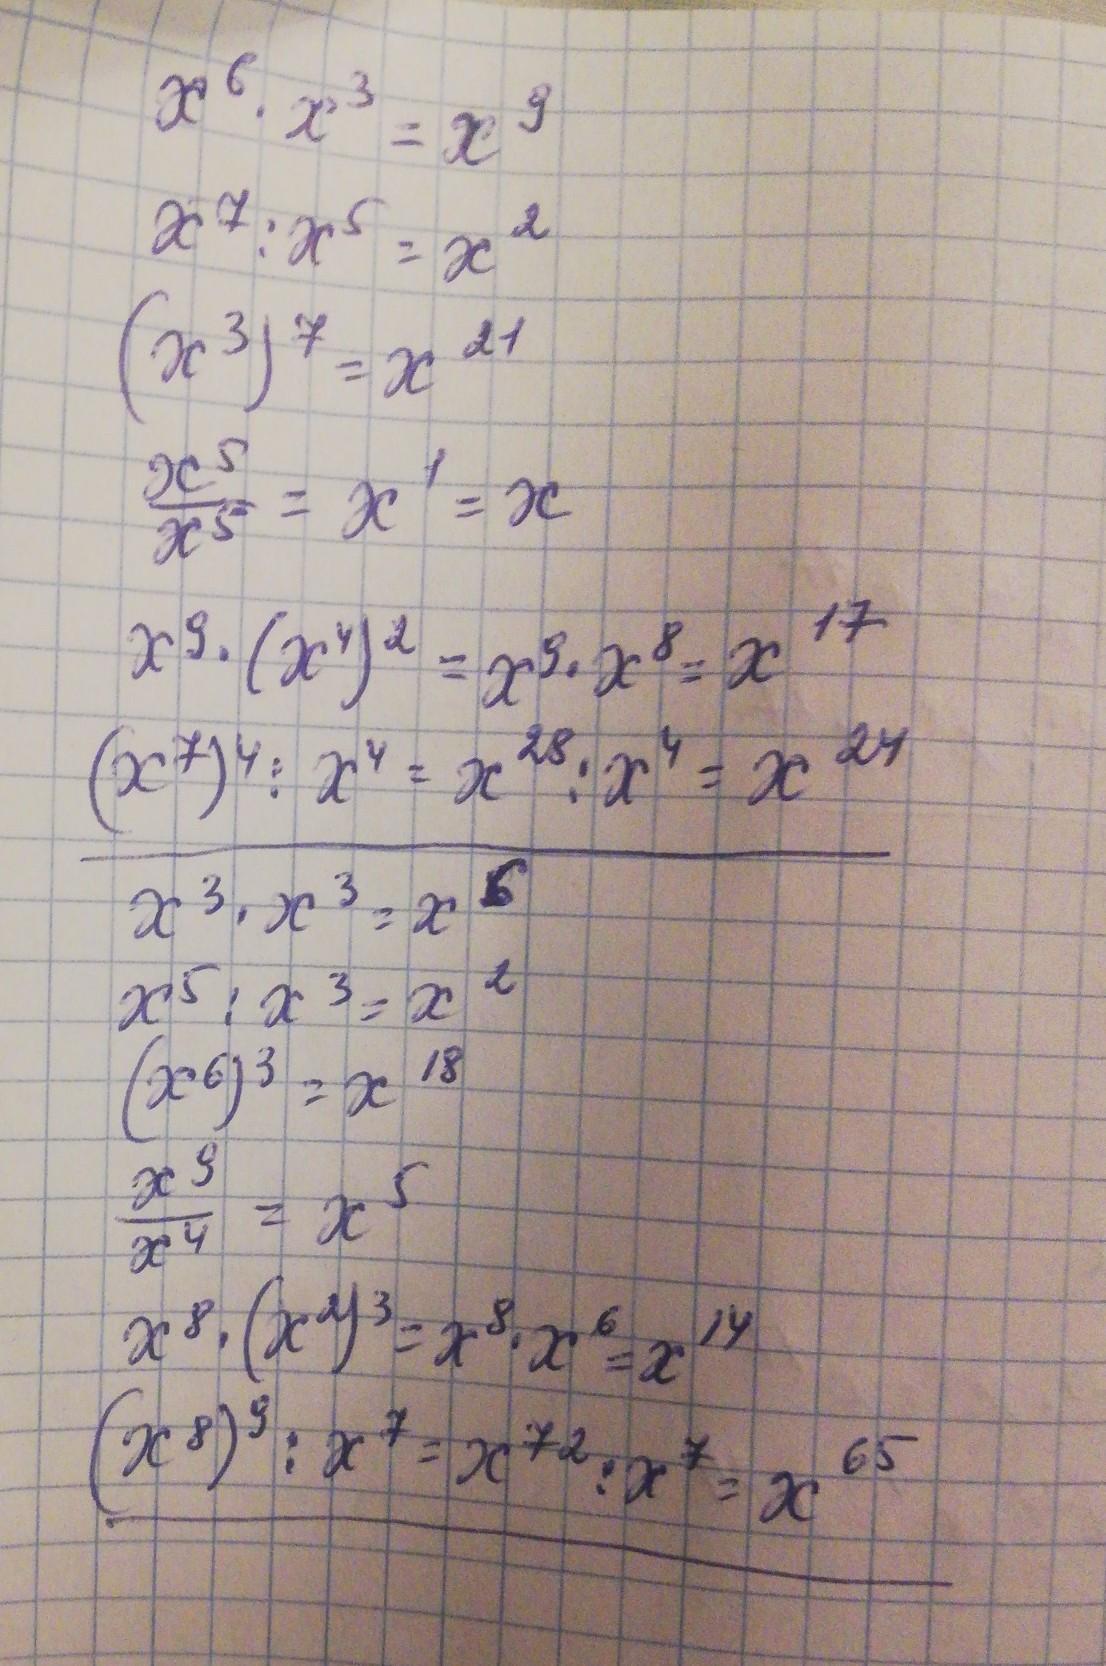 x⁶ · x³ = x⁹
x⁷ : x⁵ = x²
(x³)⁷ = x²¹
x⁵/x⁵ = x¹ = x
x⁹ · (x⁴)² = x⁹ · x⁸ = x¹⁷
(x⁷)⁴ : x⁴ = x²⁸ : x⁴ = x²⁴
x³ · x³ = x⁶
x⁵ : x³ = x²
(x⁶)³ = x¹⁸
x⁹/x⁴ = x⁵
x⁸ · (x²)³ = x⁸ · x⁶ = x¹⁴
(x⁸)⁹ : x⁷ = x⁷² : x⁷ = x⁶⁵